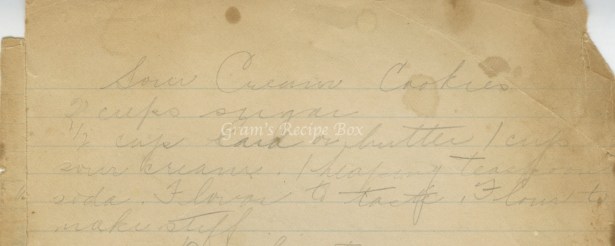 Sour Cream Cookies
2 cups sugar
1/2 cup lard or butter, 1 cup
Gram's Recipe Box
sour cream. 1 heaping teaspoon
soda. Flavor to taste. Flour to
make stiff